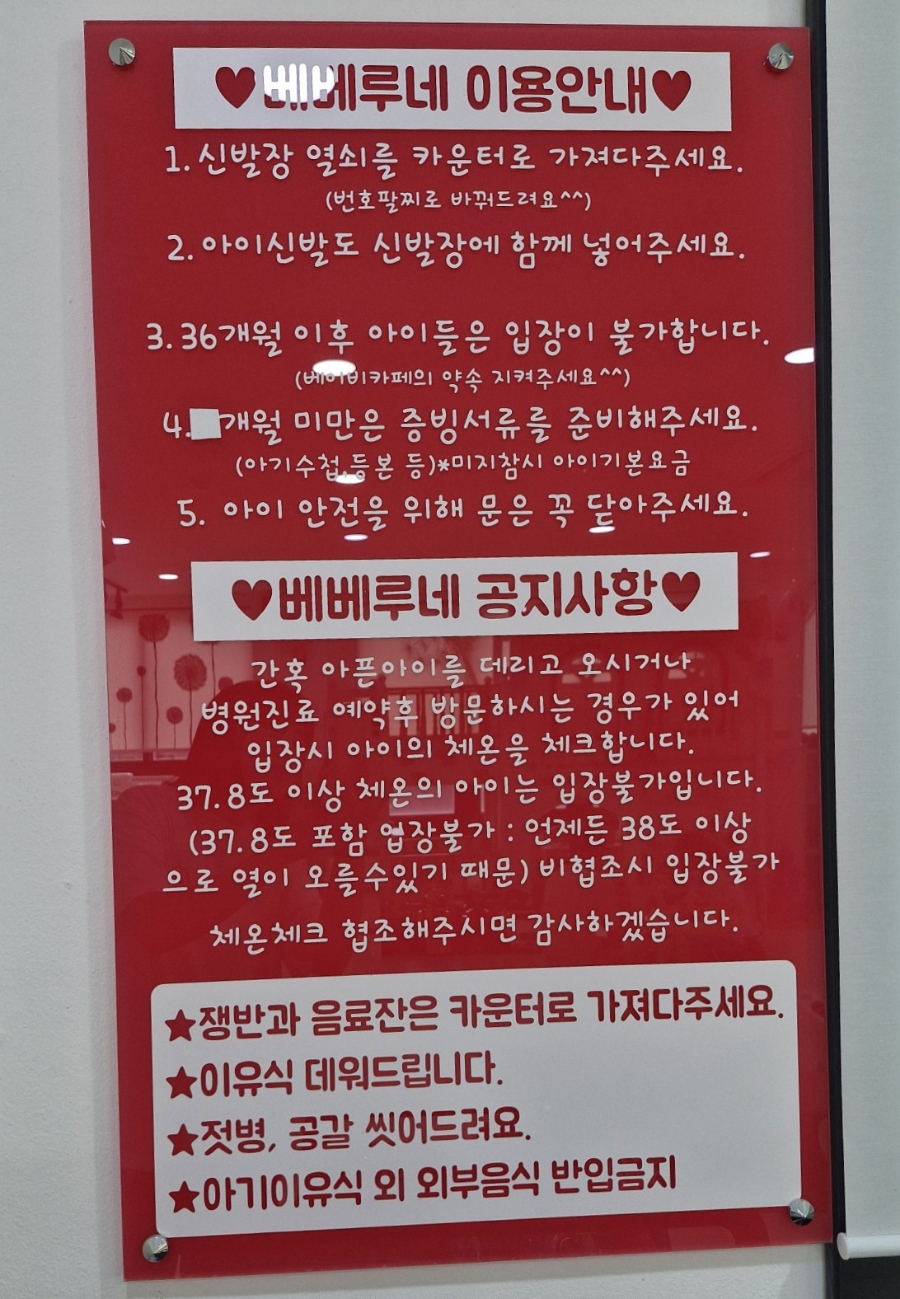 ♥베베루네 이용안내♥
1. 신발장 열쇠를 카운터로 가져다주세요.
(번호팔찌로 바꿔드려요^^)
2. 아이신발도 신발장에 함께 넣어주세요.
3. 36개월 이후 아이들은 입장이 불가합니다.
(베이비카페의 약속 지켜주세요^^)
4. 개월 미만은 증빙서류를 준비해주세요.
(아기수첩,등본 등)*미지참시 아이기본요금
5. 아이 안전을 위해 문은 꼭 닫아주세요.
♥베베루네 공지사항♥
간혹 아픈아이를 데리고 오시거나
병원진료 예약후 방문하시는 경우가 있어
입장시 아이의 체온을 체크합니다.
37.8도 이상 체온의 아이는 입장불가입니다.
(37.8도 포함 입장불가 : 언제든 38도 이상
으로 열이 오를수있기 때문) 비협조시 입장불가
체온체크 협조해주시면 감사하겠습니다.
★쟁반과 음료잔은 카운터로 가져다주세요.
★이유식 데워드립니다.
★젓병, 공갈 씻어드려요.
★아기이유식 외 외부음식 반입금지